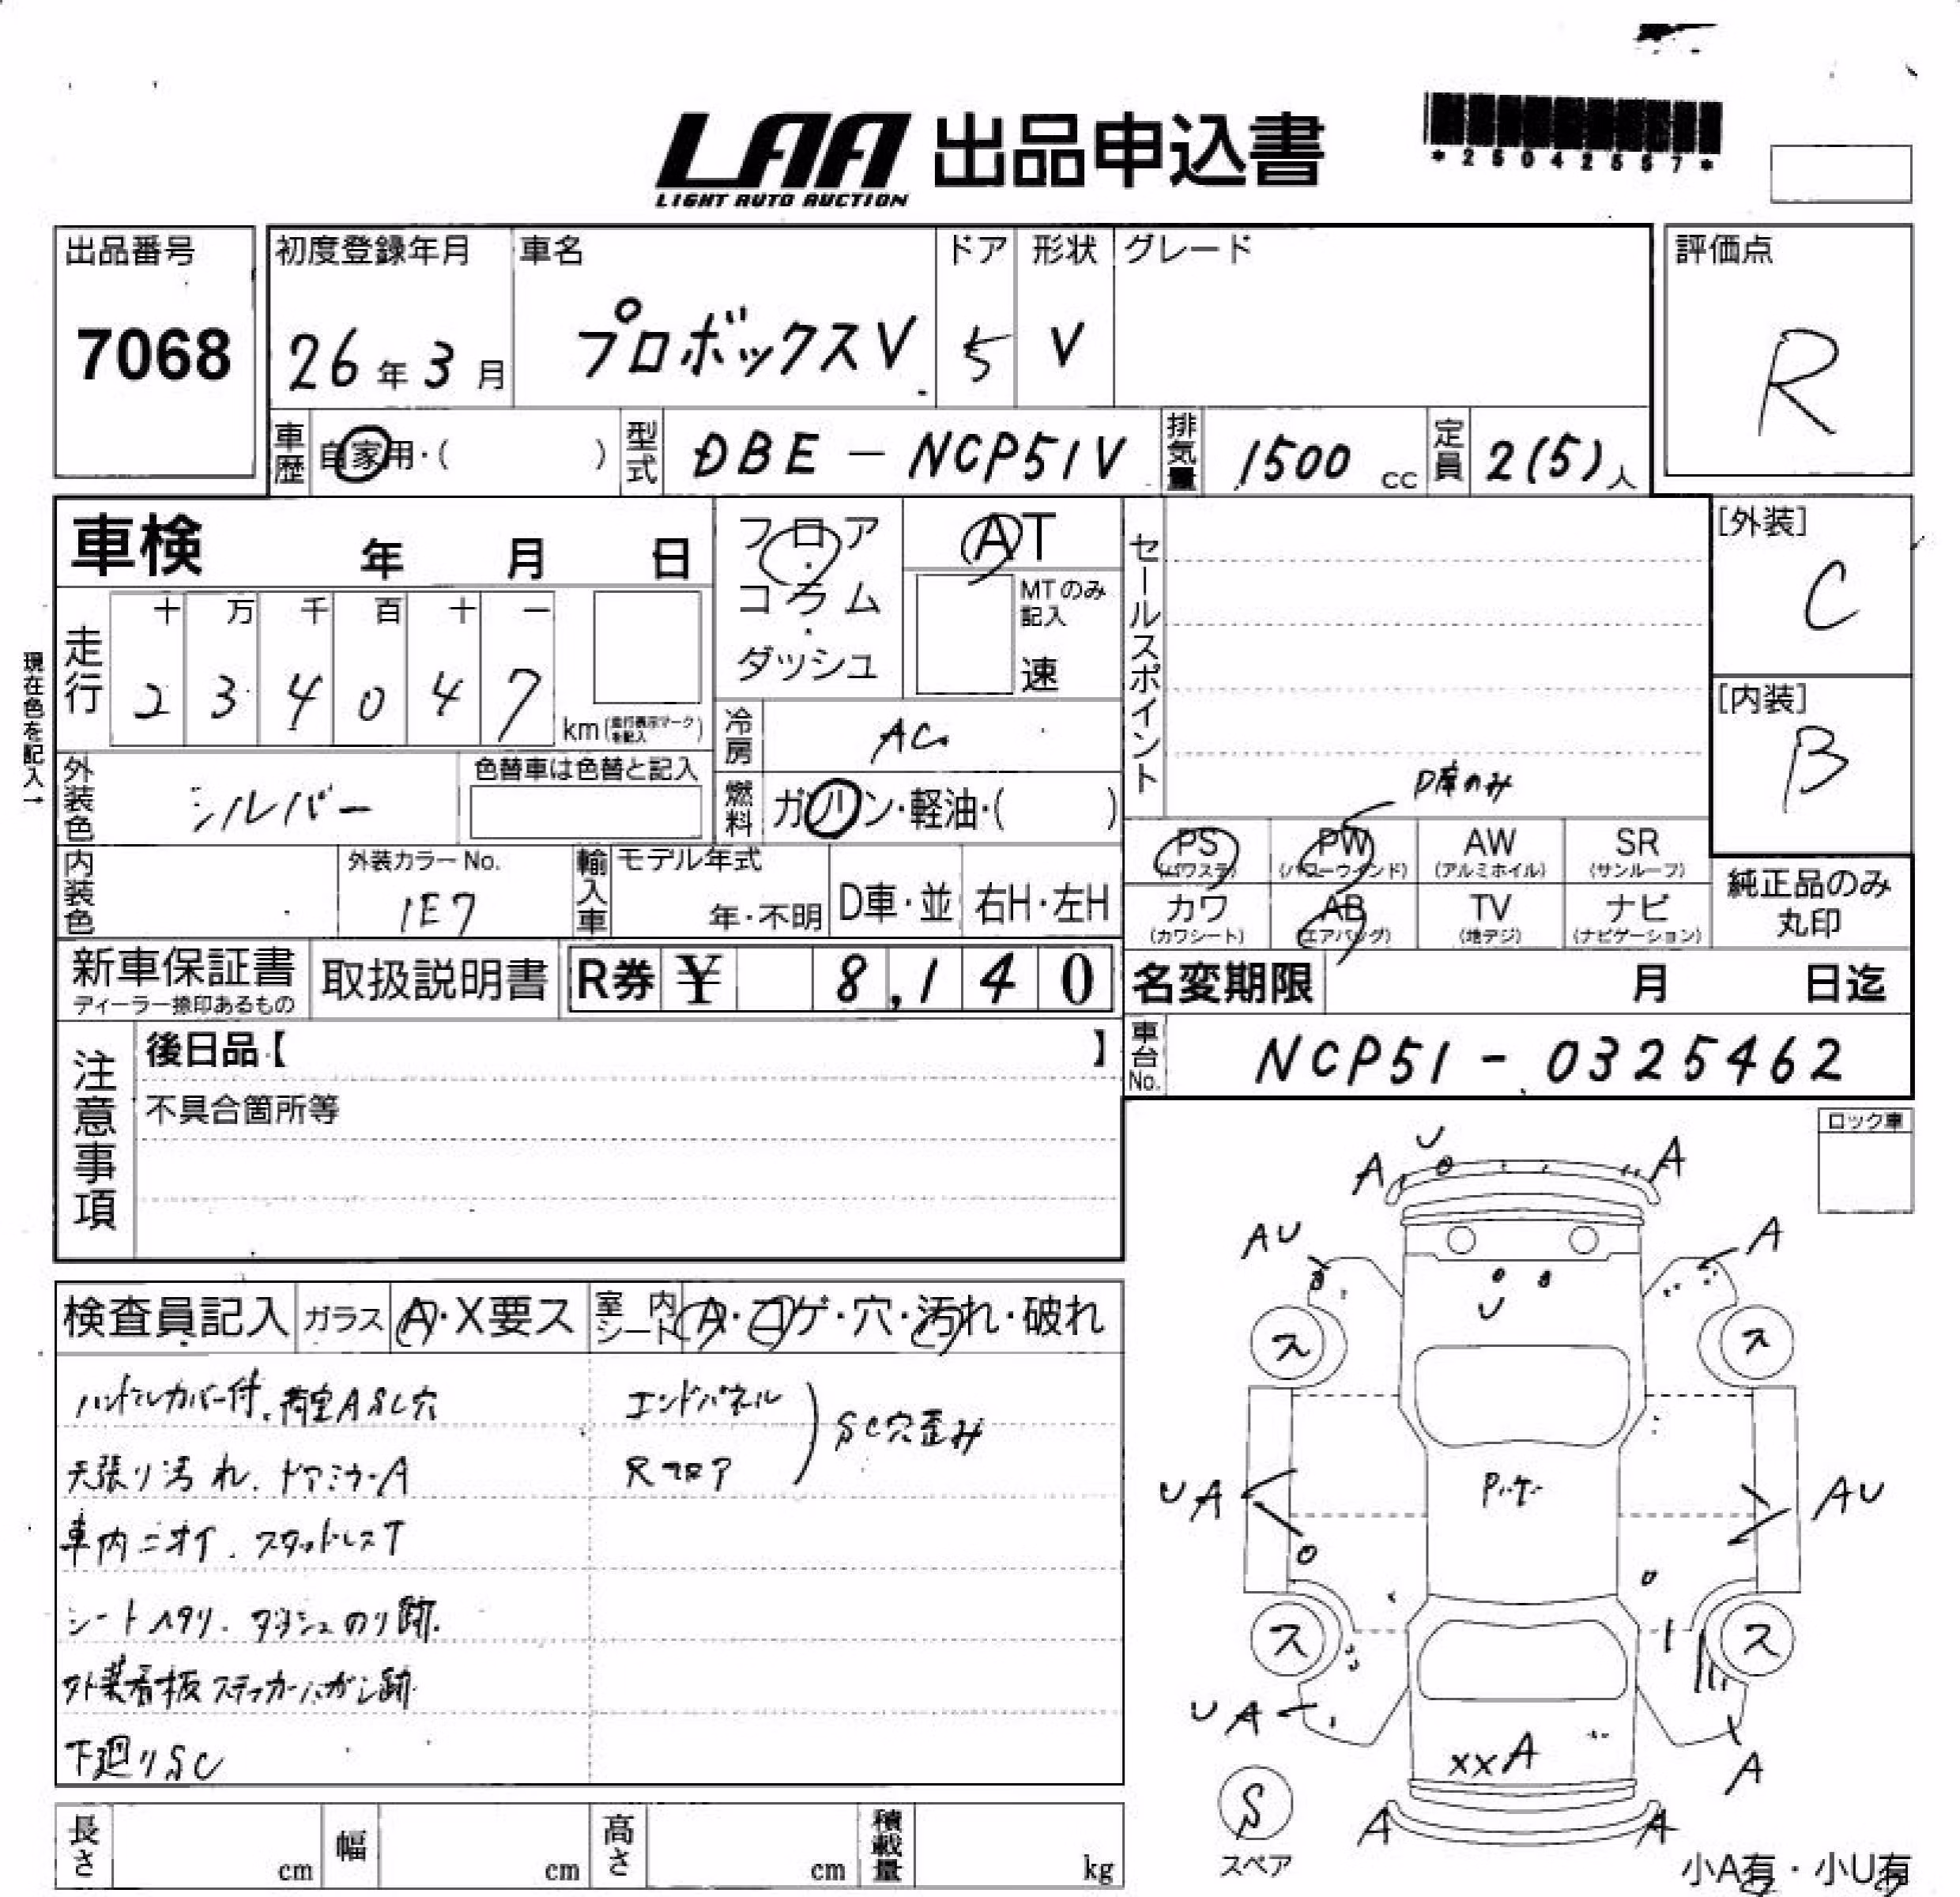 LAA 出品申込書
LIGHT AUTO AUCTION
*25042557*
出品番号
7068
初度登録年月
26年3月
車名
プロボックスV
ドア
5
形状
V
グレード
評価点
R
車歴
自家用・( )
型式
DBE-NCP51V
排気量
1500cc
定員
2(5)人
車検 年 月 日
フロア・コラム・ダッシュ
AT
MTのみ記入
速
セールスポイント
D席のみ
[外装]
C
[内装]
B
現在色を記入→
走行
十 万 千 百 十 一
2 3 4 0 4 7 km(走行表示マークを記入)
冷房
AC
外装色
シルバー
色替車は色替と記入
燃料
ガソリン・軽油・( )
PS (パワステ)
PW (パワーウインド)
AW (アルミホイル)
SR (サンルーフ)
カワ (カワシート)
AB (エアバッグ)
TV (地デジ)
ナビ (ナビゲーション)
純正品のみ丸印
内装色
外装カラーNo.
1E7
輸入車
モデル年式
年・不明
D車・並
右H・左H
新車保証書
ディーラー捺印あるもの
取扱説明書
R券 ¥ 8,140
名変期限 月 日迄
車台No.
NCP51-0325462
注意事項
後日品【 】
不具合箇所等
ロック車
検査員記入
ガラス
A・X要ス
室内シート
A・コゲ・穴・汚れ・破れ
ハンドルカバー付、荷室ASC穴
天張り汚れ、ドアミラーA
車内ニオイ、スタッドレスT
シートヘタリ、ダッシュのり跡
外装看板ステッカーハガシ跡
下廻りSC
エンドパネル
Rフロア
SC穴歪み
U
A
A
AU
A
U
ス
ス
UA
AU
ス
ス
UA
XXA
A
S
スペア
A
A
小A有・小U有
長さ cm
幅 cm
高さ cm
積載量 kg